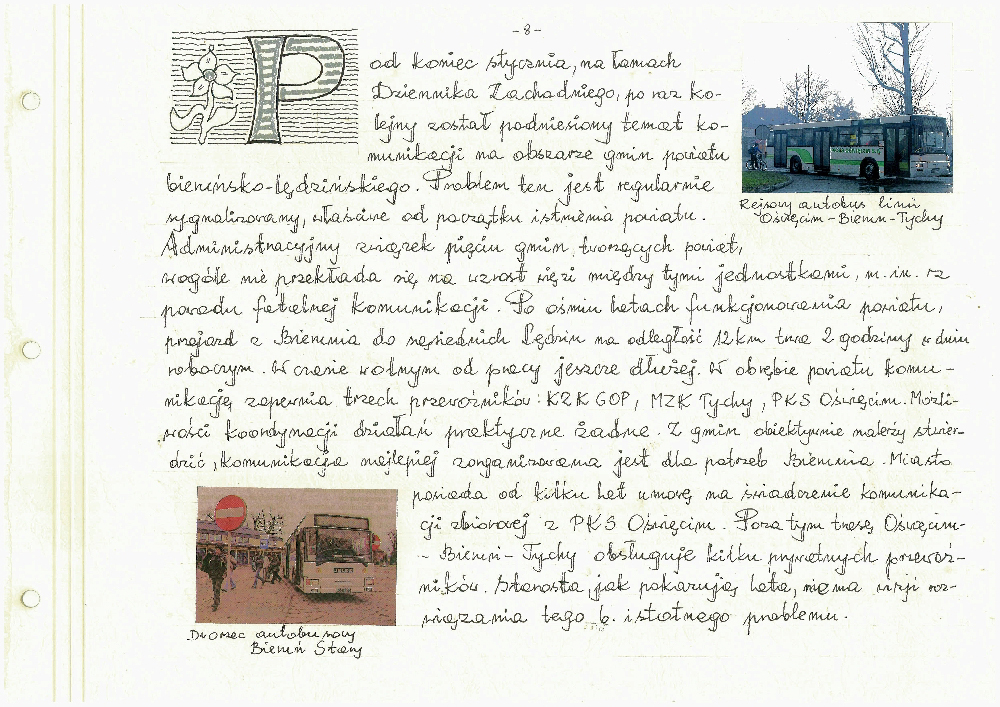 - 8 -
Pod koniec stycznia, na łamach
Dziennika Zachodniego, po raz ko-
lejny został podniesiony temat ko-
munikacji na obszarze gmin powiatu
bieruńsko-lędzińskiego. Problem ten jest regularnie
sygnalizowany, właściwie od początku istnienia powiatu.
Administracyjny związek pięciu gmin, tworzących powiat,
wogóle nie przekłada się na wzrost więzi między tymi jednostkami, m. in. z
powodu fatalnej komunikacji. Po ośmiu latach funkcjonowania powiatu,
przejazd z Bierunia do sąsiednich Lędzin na odległość 12 km trwa 2 godziny w dniu
roboczym. W czasie wolnym od pracy jeszcze dłużej. W obrębie powiatu komu-
nikację zapewnia trzech przewoźników: KZK GOP, MZK Tychy, PKS Oświęcim. Możli-
wości koordynacji działań praktycznie żadne. Z gmin obiektywnie należy stwier-
dzić, komunikacja najlepiej zorganizowana jest dla potrzeb Bierunia. Miasto
posiada od kilku lat umowę na świadczenie komunika-
cji zbiorowej z PKS Oświęcim. Poza tym trasę Oświęcim-
- Bieruń - Tychy obsługuje kilku prywatnych przewoź-
ników. Starosta, jak pokazują lata, nie ma wizji roz-
wiązania tego b. istotnego problemu.
Rejsowy autobus linii
Oświęcim - Bieruń - Tychy
Dworzec autobusowy
Bieruń Stary